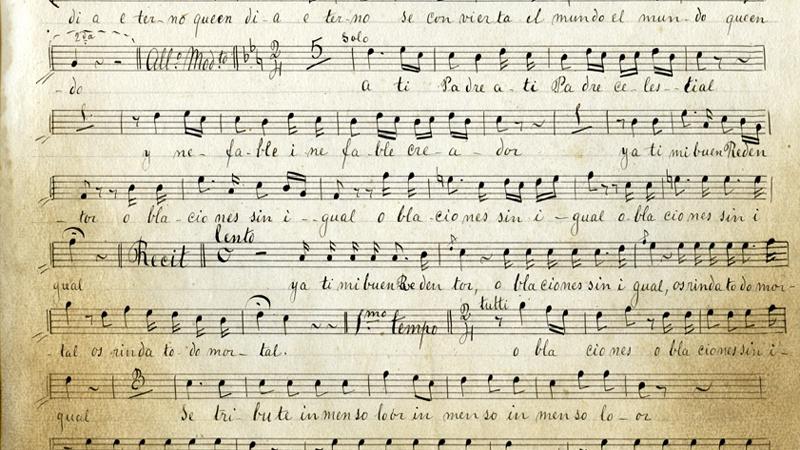 di a e ter-no queen di-a e ter-no se con vier ta el mundo el mun-do queen
2da All.º Mod.to 2 4 5 Solo
-do a ti Pa dre a-ti Pa dre ce-les-tial
y ne-fa-ble i ne fa-ble cre-a-dor ya ti mi buen Reden
-tor o bla-cio nes sin i--gual o bla-cio nes sin i-gual o bla ciones sin i
Recit lento
gual ya ti mi buen Reden tor, o bla ciones sin i gual, os rinda to do mor-
1mo tempo 2 4 tutti
-tal os rinda to-do mor-tal. o bla cio nes o bla ciones sin i-
3
gual Se tri-bu te in men so loor in men so in men so lo-or